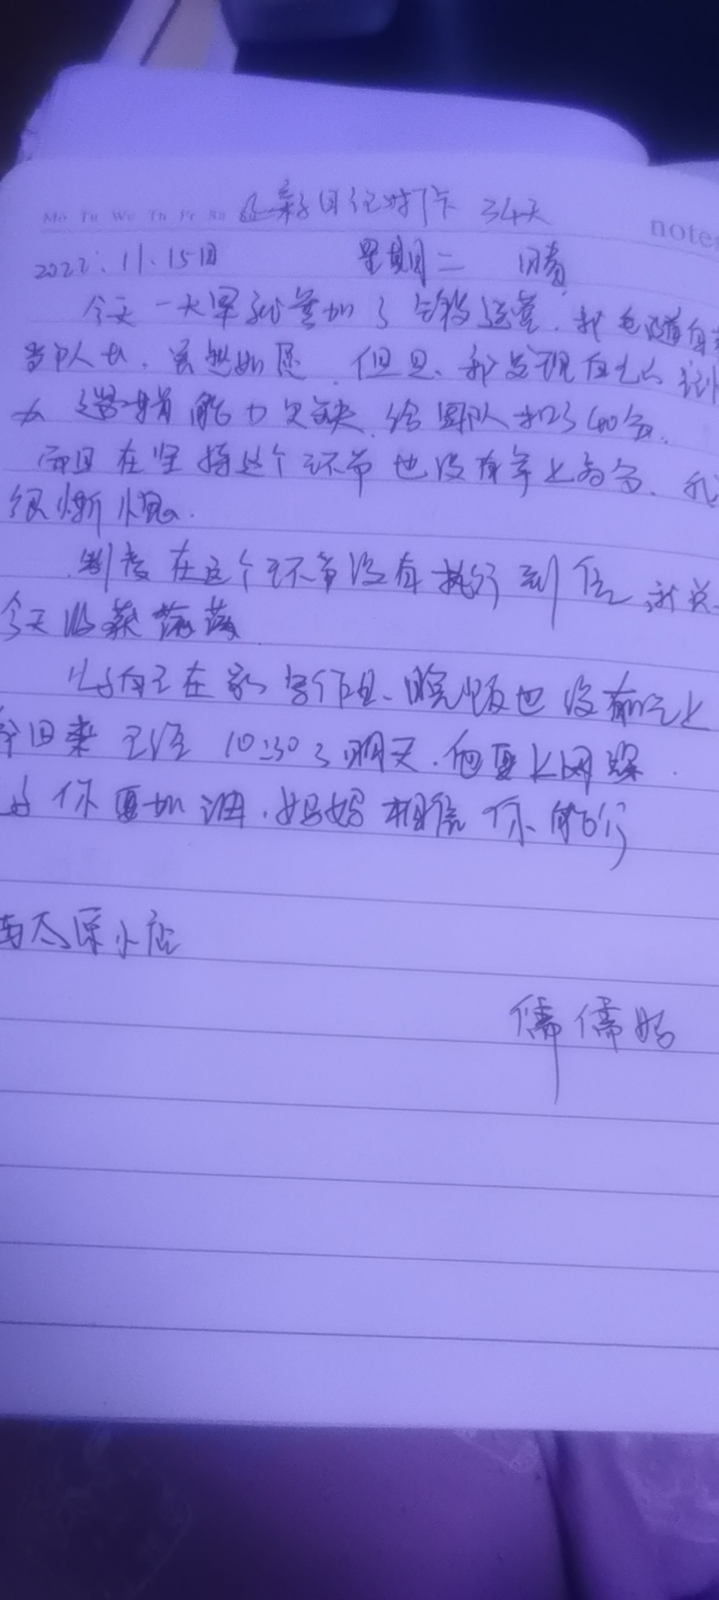 Mo Tu We Th Fr Sa
日记打卡 34天
note
2022.11.15日 星期二 晴
今天一大早就参加了 运营.我也 自
当队长.虽然如愿.但是.我发现自己的
能力欠缺.给团队扣了40分.
而且在坚持这个环节也没有拿上满分.我
很惭愧.
制度在这个环节没有执行到位.
今天收获满满
自己在家写作业.晚饭也没有吃上
回来已经10:30了.明天.他要上网课.
你要加油.妈妈相信你.能行
太原小店
儒儒妈